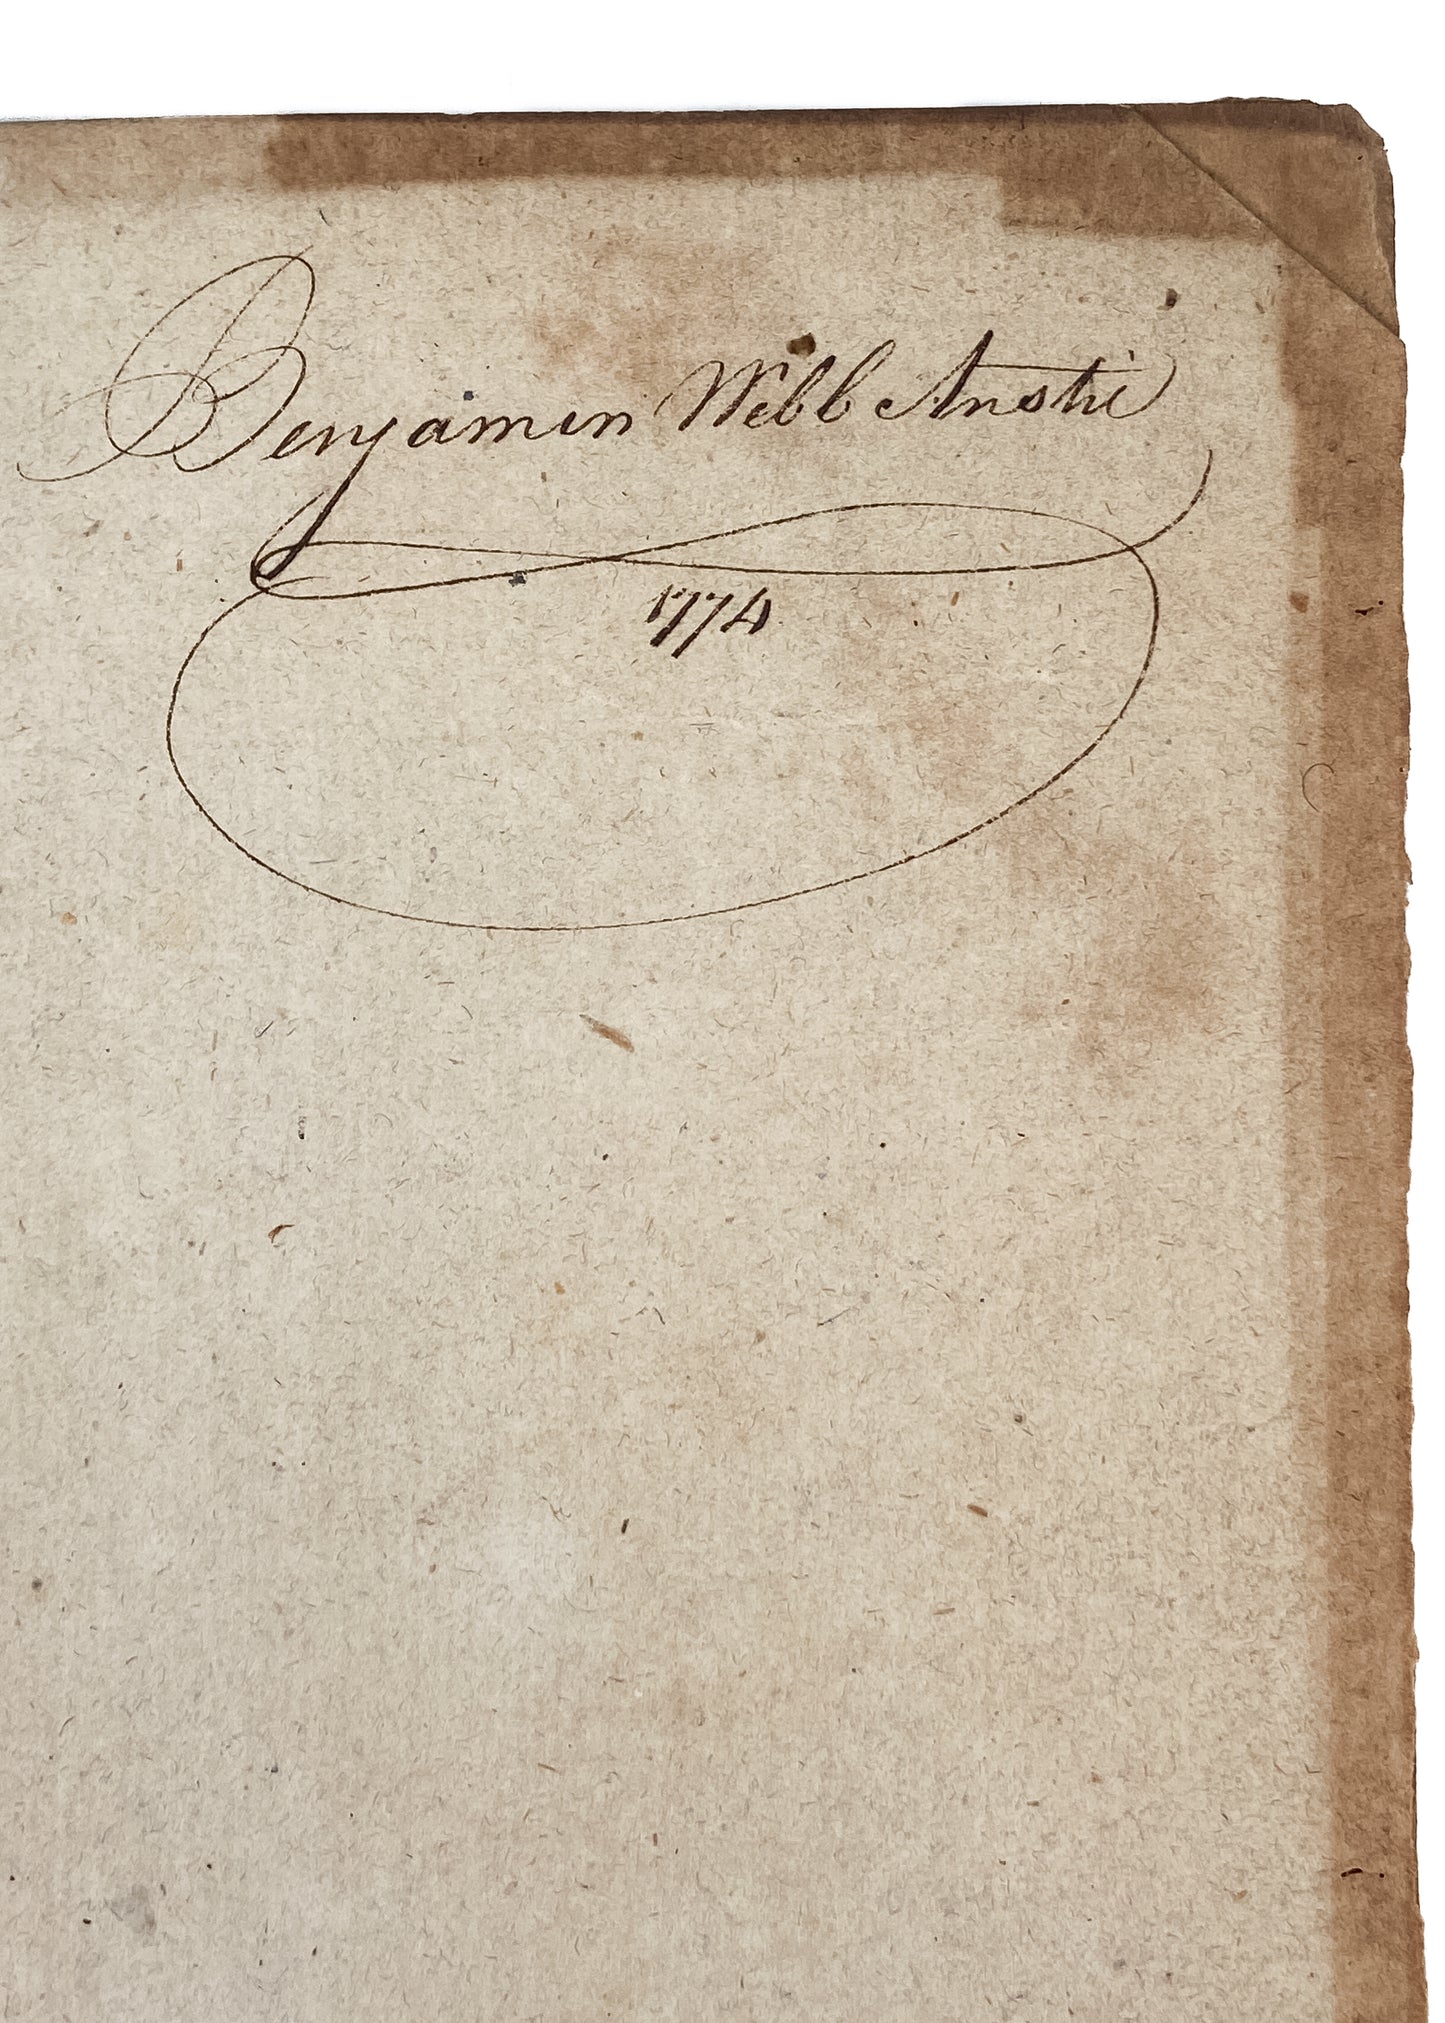 Benjamin Webb Anstie
1774